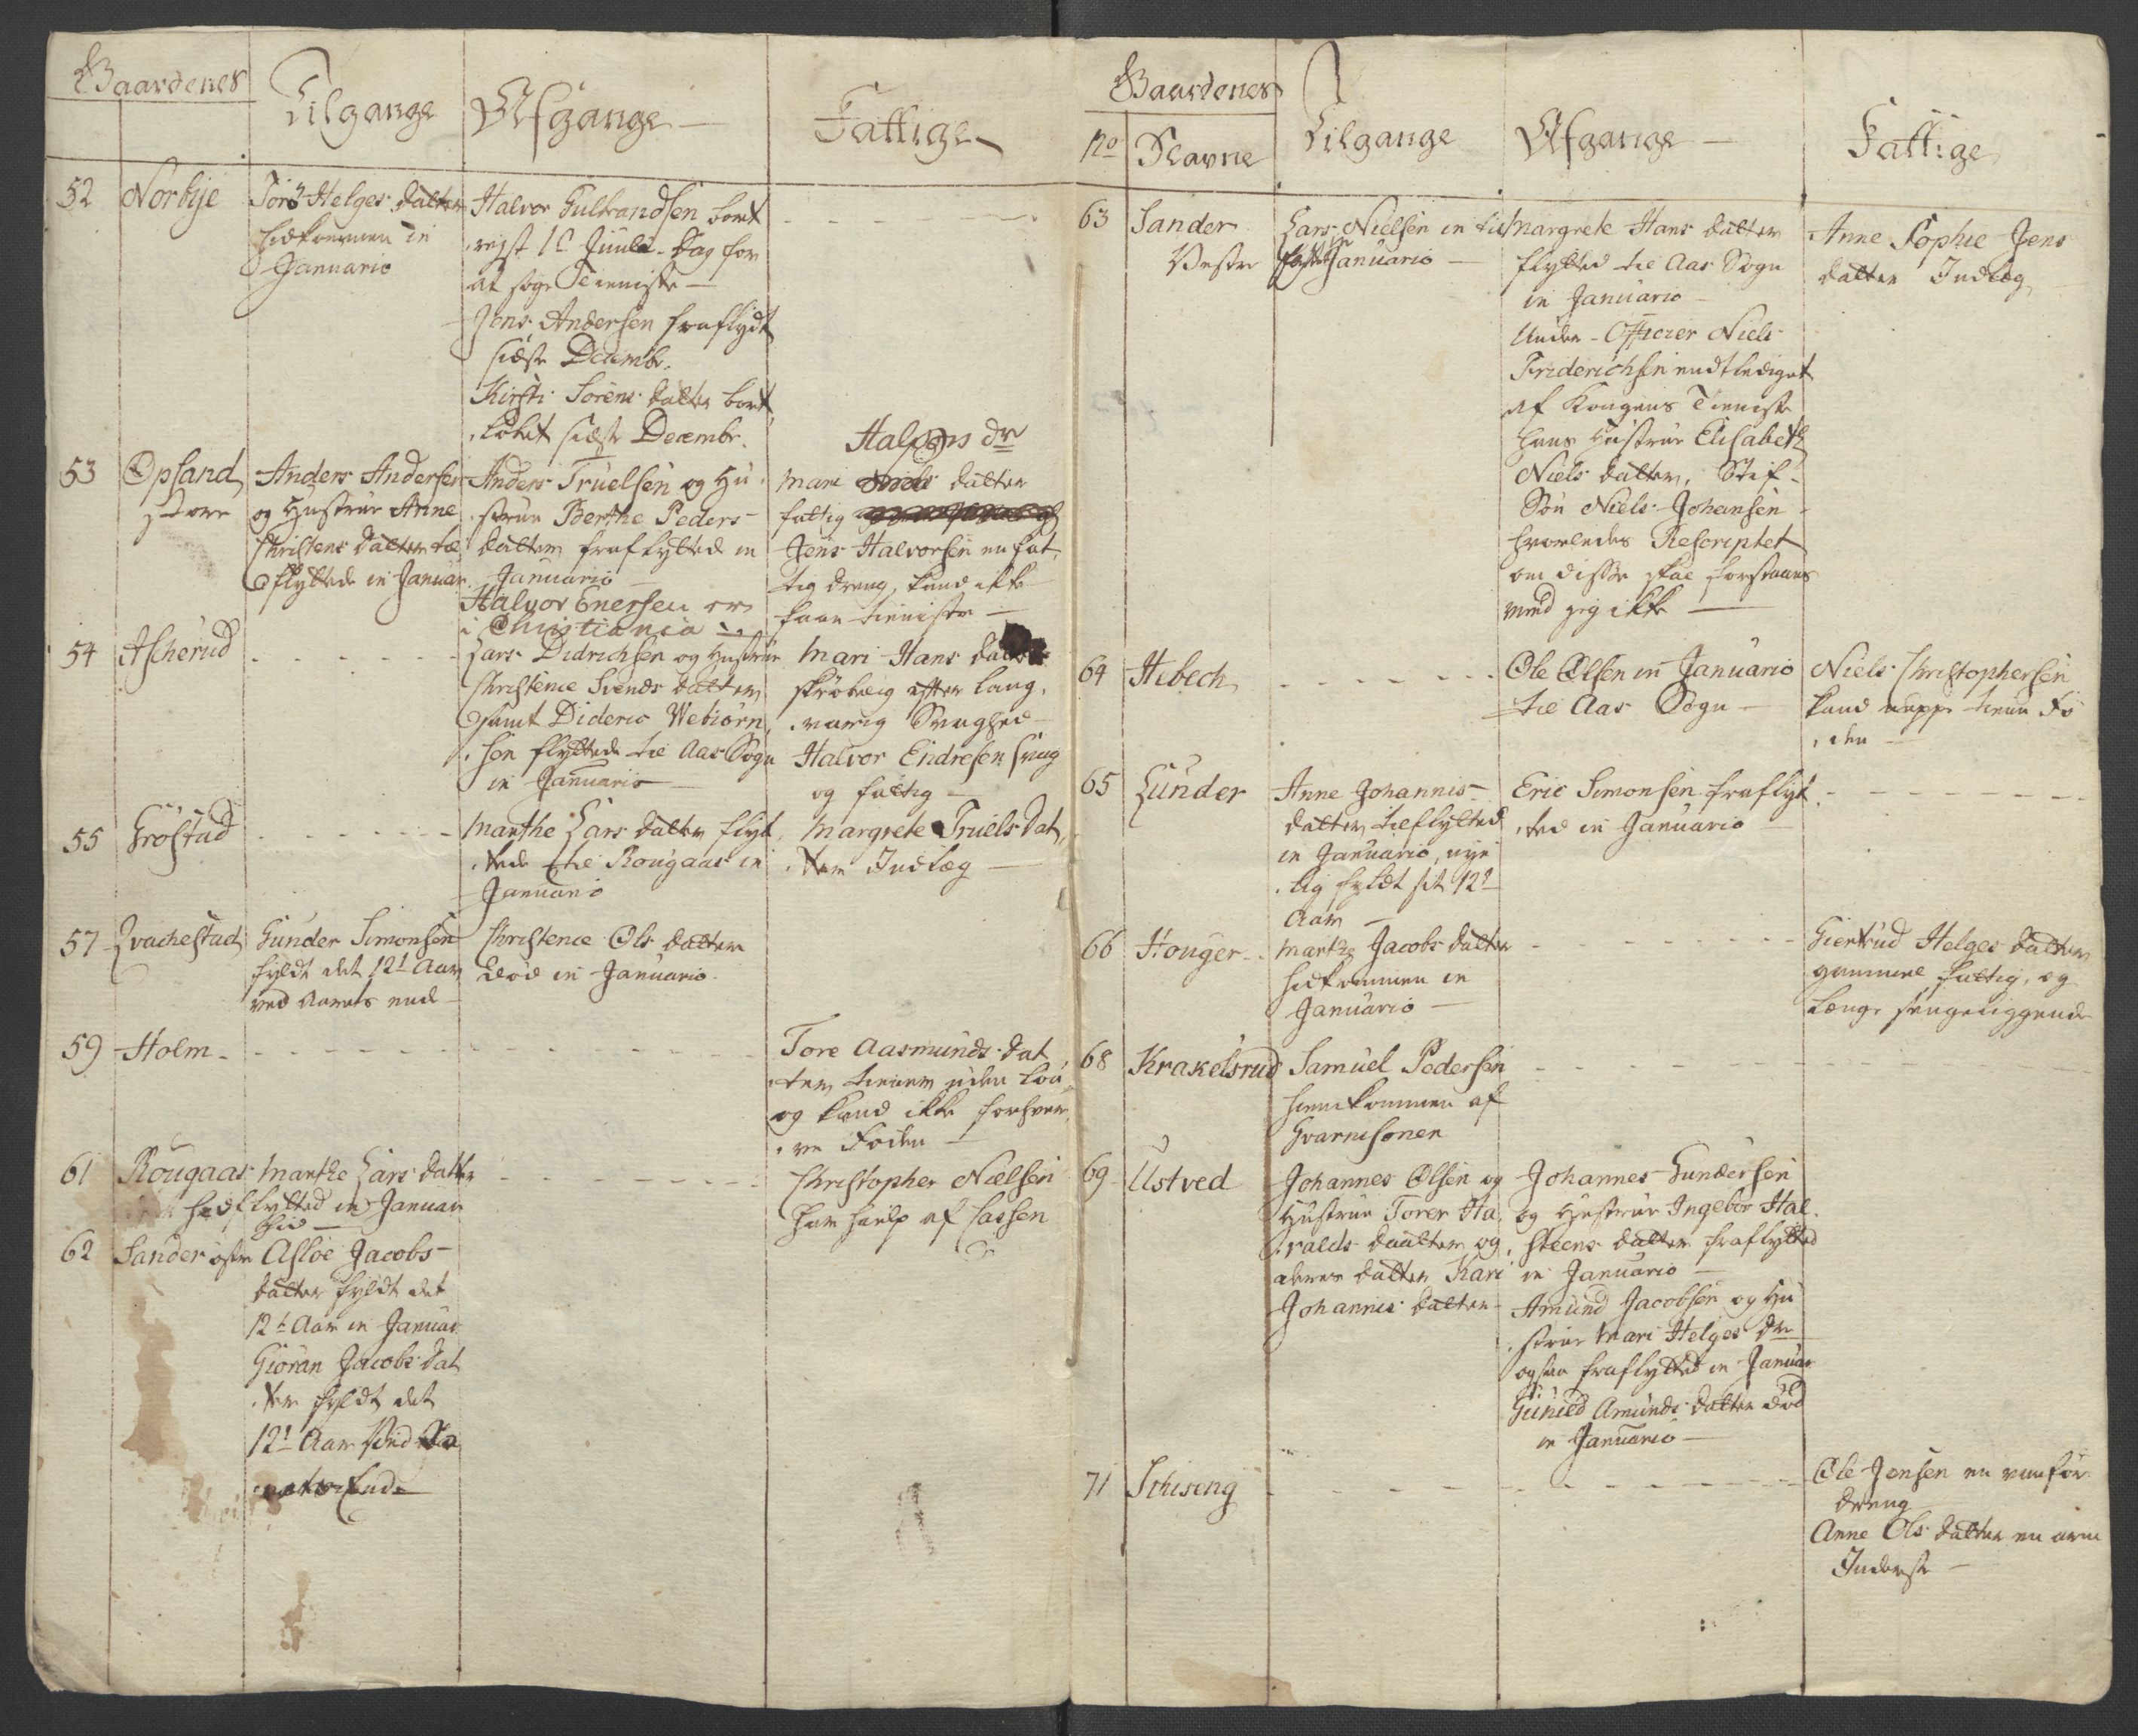 Gaardenes
Tilgange
Afgange
Fattige
52 Norbye
Törs Helges datter
hidkommen in
Januario
Halvor Gulbrandsen bort
rejst 1te Juule-Dag for
at söge Tieniste
Jens Andersen fraflydt
sidste Decembr.
Kirsti Sörens datter bort
sidste Decembr.
53 Opsand
Store
Anders Andersen
og Hustrue Anne
Christens datter til
flyttede in Januar
Anders Truelsen og Hu
strue Berthe Peders
datter fraflytted in
Januario
Halvor Enersen er
i Christiania
Halvors dr
Mari datter
fattig
Jens Halvorsen en fat
tig dreng, kand ikke
faae tieniste
54 Ascherud
Lars Didrichsen og Hustrue
Christence Svends datter
samt Dideric Webiörn
sen flyttede til Aas Sogn
in Januario
Mari Hans datter
skröbelig efter lang
varig Svaghed
Halvor Eindresen svag
og fattig
55 Gröstad
Marthe Lars datter flyt
tede til Rougaas in
Januario
Margrete Truels dat
ter Indlæg
57 Qvachestad
Gunder Simonsen
fyldt det 12te Aar
ved Aarets ende
Christence Ols datter
död in Januario
59 Holm
Tore Aasmunds dat
ter tiener uden Lön
og kand ikke forhver
ve Föden
61 Rougaas
Marthe Lars datter
hidflytted in Januar
hid
Christopher Nielsen
har hielp af Cassen
62 Sander östre
Asloe Jacobs
datter fyldt det
12te Aar in Januar
Gioran Jacobs dat
ter fyldt det
12te Aar Ved
Ende
Gaardenes
No Navne
Tilgange
Afgange
Fattige
63 Sander
Vestre
Lars Nielsen in
Januario
Margrete Hans datter
flytted til Aas Sogn
in Januario
Under-Officier Niels
Friderichsen endtlediget
af Kongens Tieniste
hans Hustrue Elisabeth
Niels datter, Stif-
Sön Niels Johansen
hvorledes Rescriptet
om disse skal forstaaes
veed jeg ikke
Anne Sophie Jens
datter Indlæg
64 Hebech
Ole Olsen in Januario
til Aas Sogn
Niels Christophersen
kand neppe tiene Fö
den
65 Lunder
Anne Johannis
datter tilflytted
in Januario, nye
lig fyldt sit 12te
Aar
Eric Simonsen fraflyt
ted in Januario
66 Houger
Marthe Jacobs datter
hidkommen in
Januario
Giertrud Helges datter
gammel fattig, og
længe sengeliggende
68 Krakelsrud
Samuel Pedersen
hiemkommen af
Gvarnisonen
69 Ustved
Johannes Olsen og
Hustrue Torer Ha
ralds daatter og
deres datter Kari
Johannis datter
Johannes Gundersen
og Hustrue Ingebor Hal
steens datter fraflytted
in Januario
Amund Jacobsen og Hu
strue Mari Helges dr
ogsaa fraflytted in Januar
Gunild Amunds datter död
in Januario
71 Schiseng
Ole Jensen en vanför
dreng
Anne Ols datter en arm
Inderste